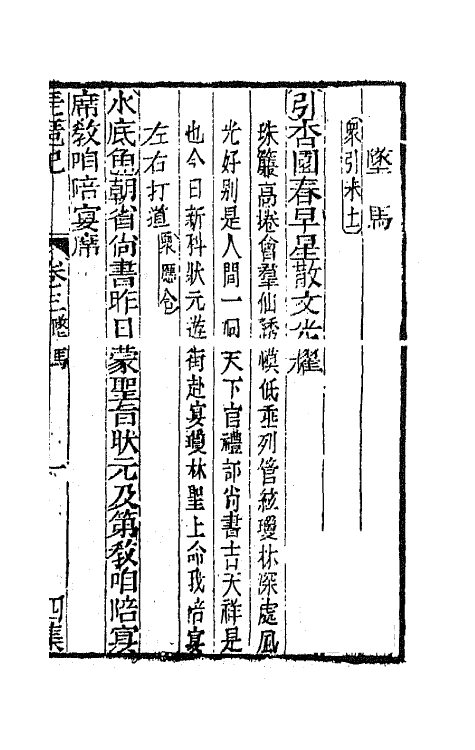 墜馬
衆引末上
引杏園春早星散文光耀
珠簾高捲會羣仙誘幙低垂列管絃瓊林深處風
光好别是人間一洞天下官禮部尚書吉天祥是
也今日新科狀元遊街赴宴瓊林聖上命我陪宴
左右打道衆應仝
水底魚朝省尙書昨日蒙聖旨狀元及第教咱陪宴
席教咱陪宴席
琵琶記 卷三墜馬 一 四集